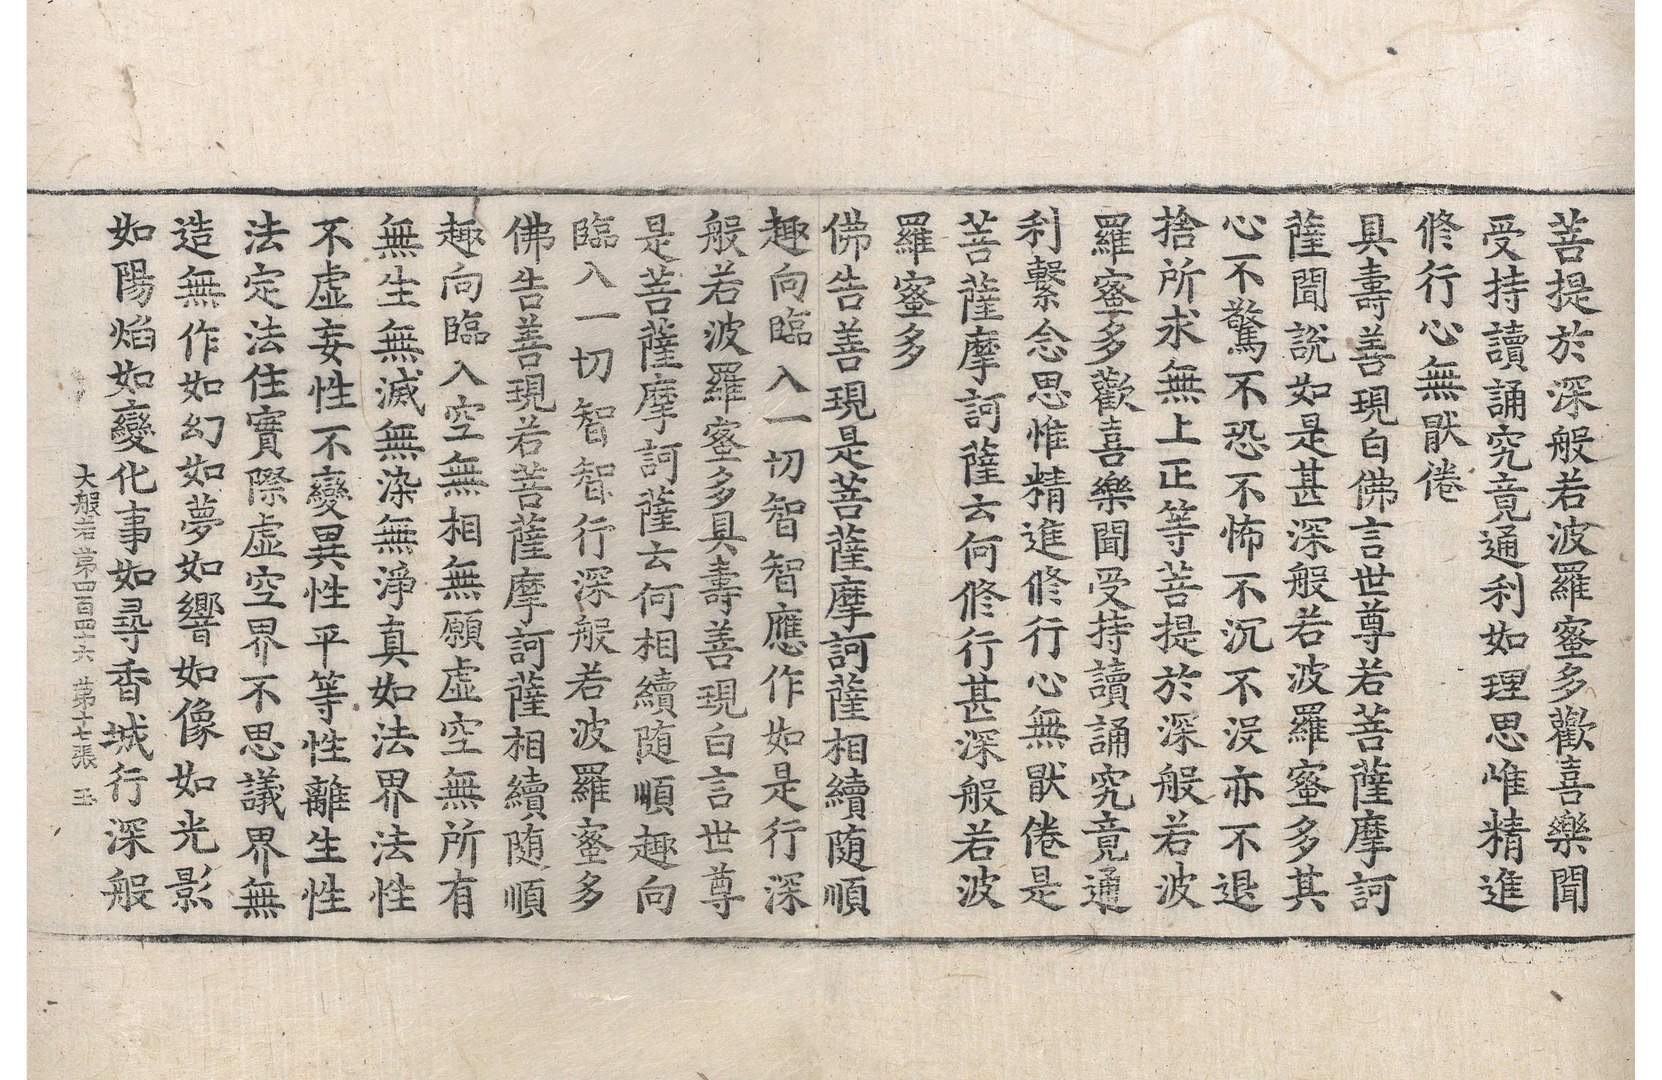 菩提於深般若波羅蜜多歡喜樂聞
受持讀誦究竟通利如理思惟精進
修行心無猒倦
具壽善現白佛言世尊若菩薩摩訶
薩聞說如是甚深般若波羅蜜多其
心不驚不恐不怖不沉不沒亦不退
捨所求無上正等菩提於深般若波
羅蜜多歡喜樂聞受持讀誦究竟通
利繫念思惟精進修行心無猒倦是
菩薩摩訶薩云何修行甚深般若波
羅蜜多
佛告善現是菩薩摩訶薩相續随順
趣向臨入一切智智應作如是行深
般若波羅蜜多具壽善現白言世尊
是菩薩摩訶薩云何相續随順趣向
臨入一切智智行深般若波羅蜜多
佛告善現若菩薩摩訶薩相續随順
趣向臨入空無相無願虛空無所有
無生無滅無染無淨真如法界法性
不虛妄性不變異性平等性離生性
法定法住實際虛空界不思議界無
造無作如幻如夢如響如像如光影
如陽焰如變化事如尋香城行深般
大般若第四百四十六 第十七張 玉